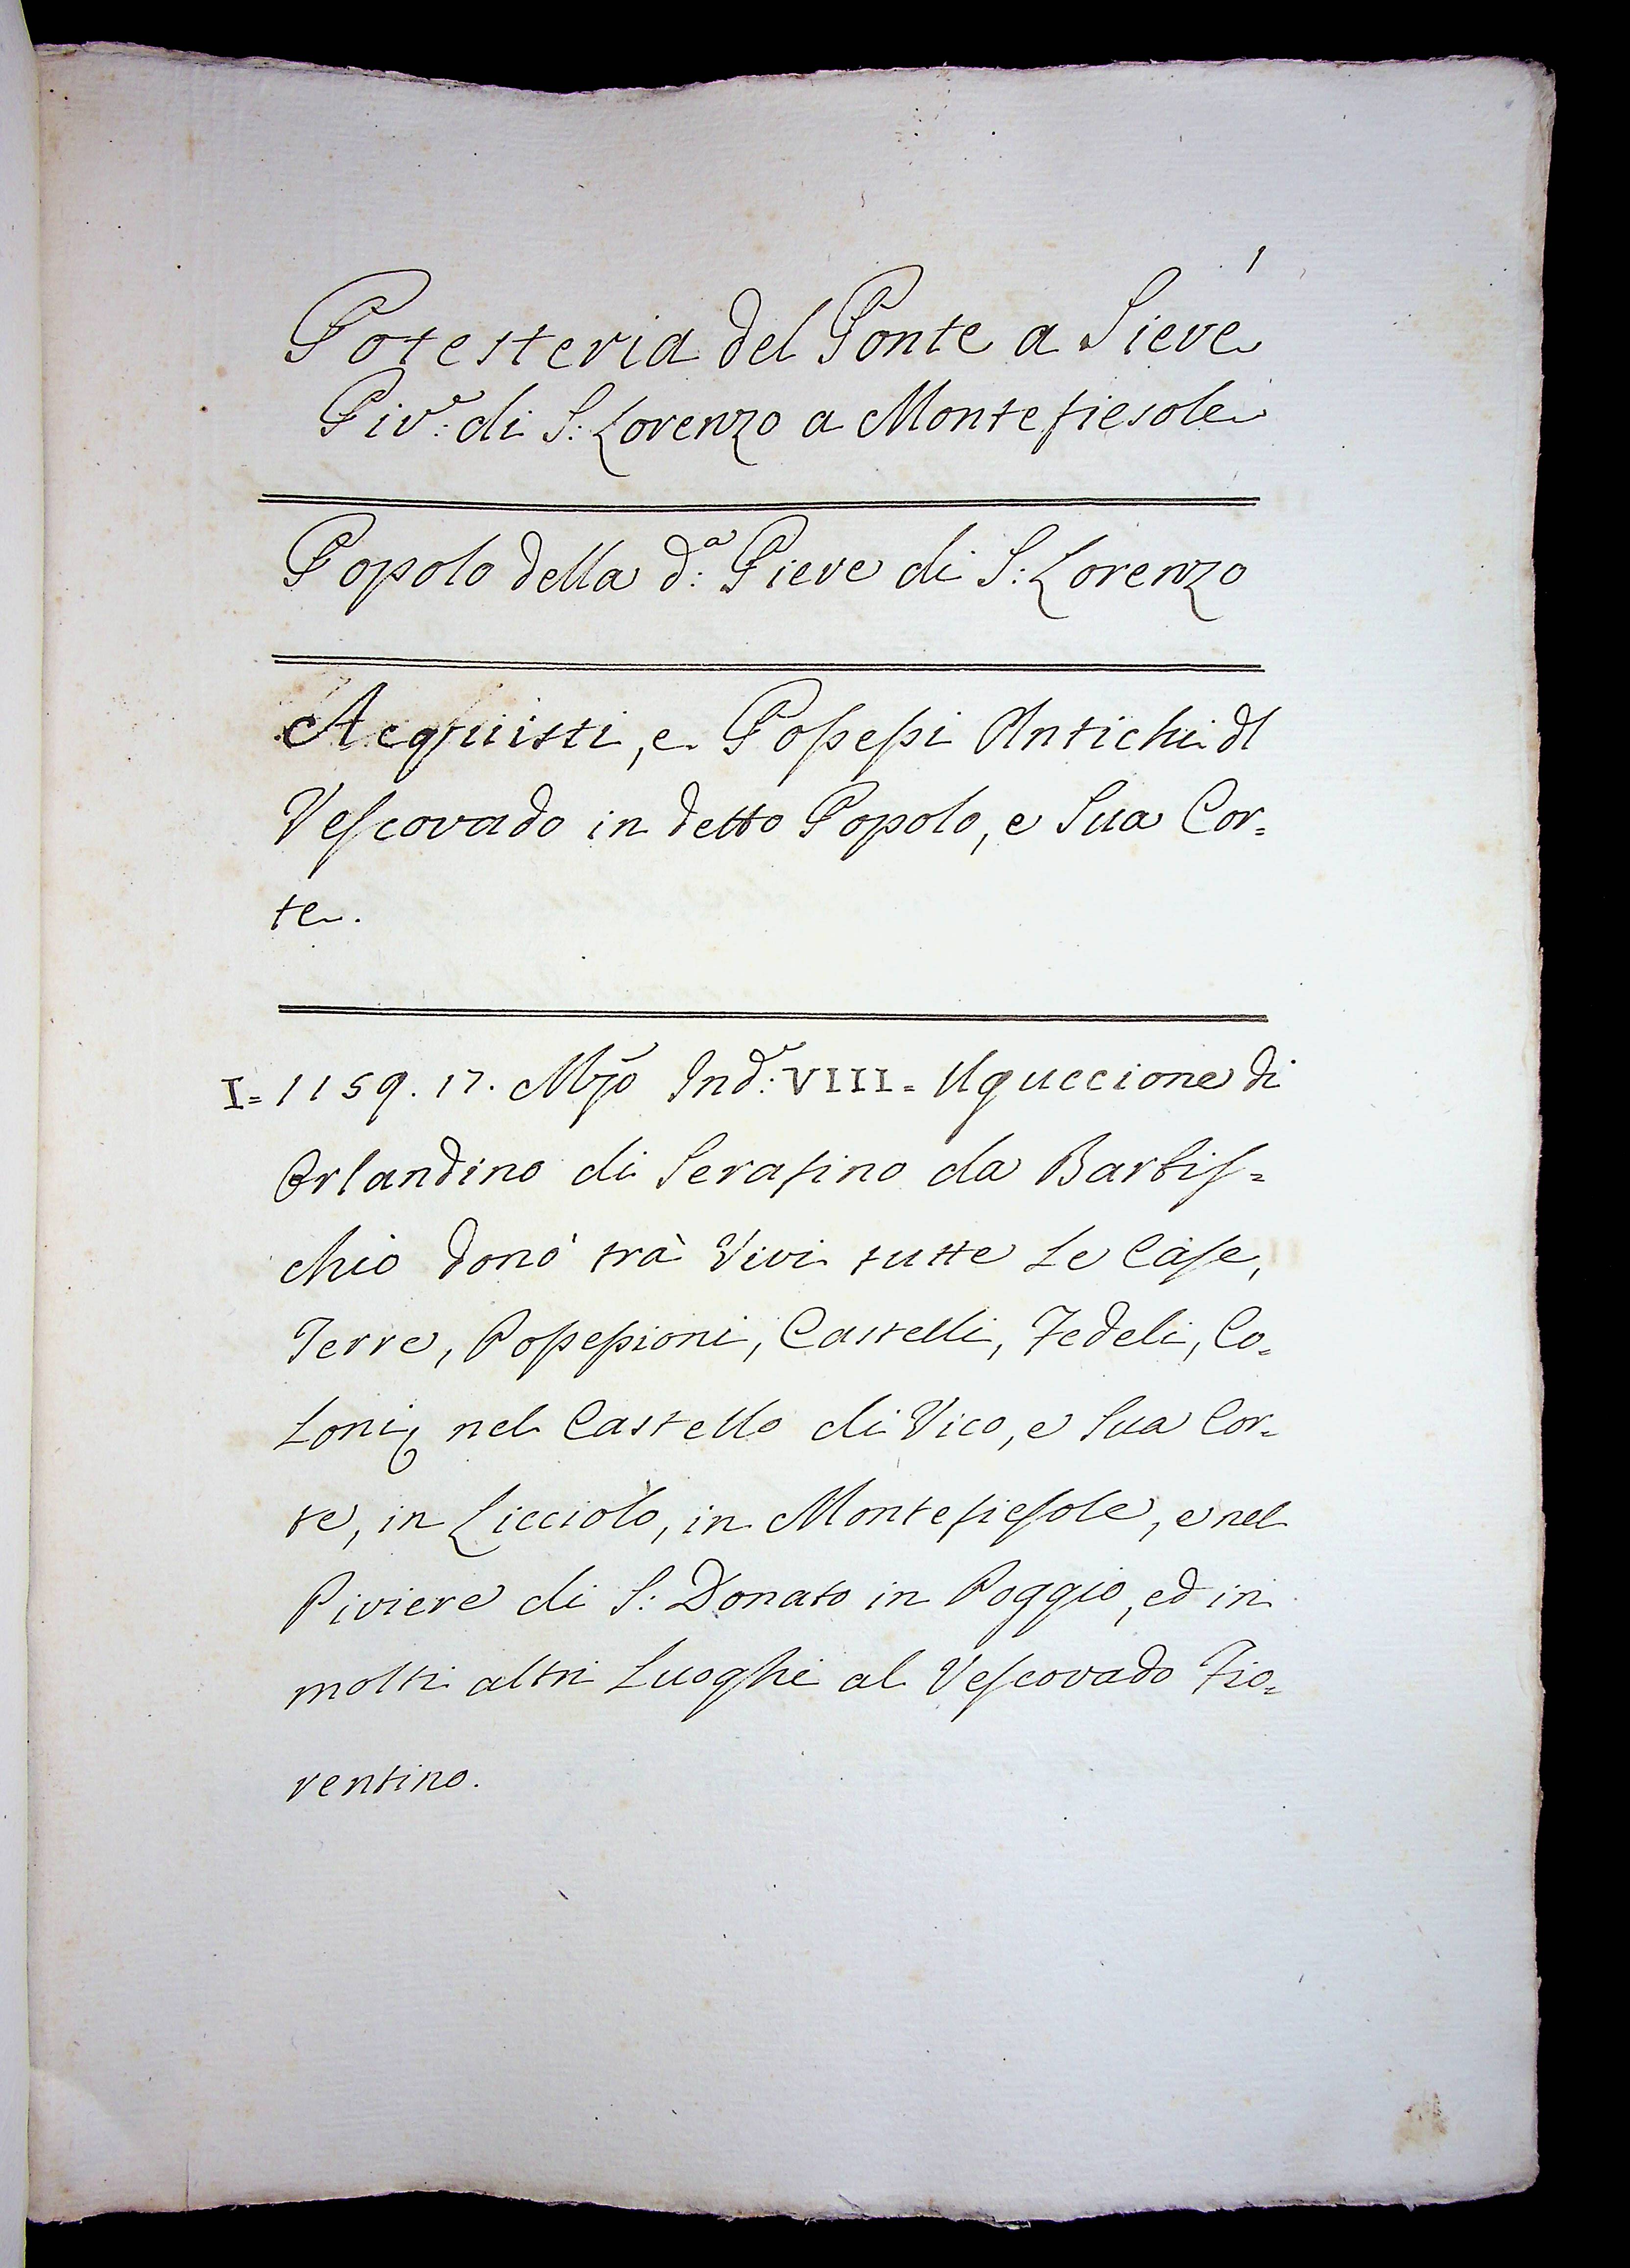 1
Potesteria del Ponte a Sieve
Piv.e: di S: Lorenzo a Montefiesole
Popolo della d:a Pieve di S: Lorenzo
Acquisti, e Possessi Antichi dl
Vescovado in detto Popolo, e Sua Cor=
te.
I= 1159. 17. Mȷo Ind:e VIII= Uguccione di
Orlandino di Serafino da Barbis=
chio donò trà Vivi tutte Le Case,
Terre, Possessioni, Castelli, Fedeli, Co=
Loni, nel Castello di Vico, e Sua Cor=
te, in Licciolo, in Montefiesole, e nel
Piviere di S: Donato in Poggio, ed in
molti altri Luoghi al Vescovado Fio=
rentino.